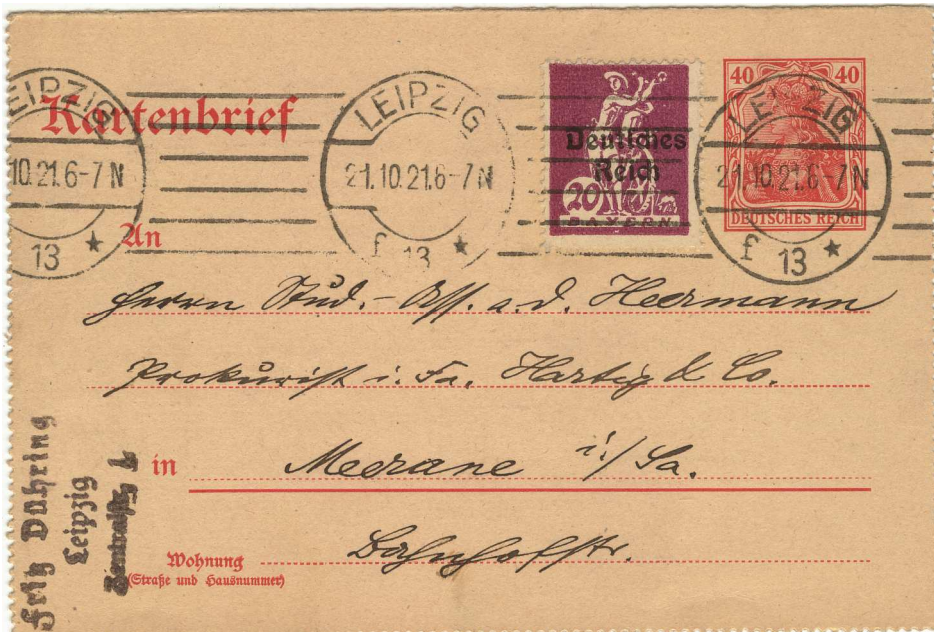 Kartenbrief
LEIPZIG
10.21.6-7 N
13
LEIPZIG
21.10.21.6-7 N
f 13
Deutsches
Reich
20
BAYERN
40 40
DEUTSCHES REICH
LEIPZIG
21.10.21.6-7 N
f 13
An
Herrn Stud.-Ass. a.d. Heermann
Prokurist i. Fa. Hartig & Co.
in Meerane i./Sa.
Wohnung Bahnhofstr.
(Straße und Hausnummer)
Fritz Dühring
Leipzig